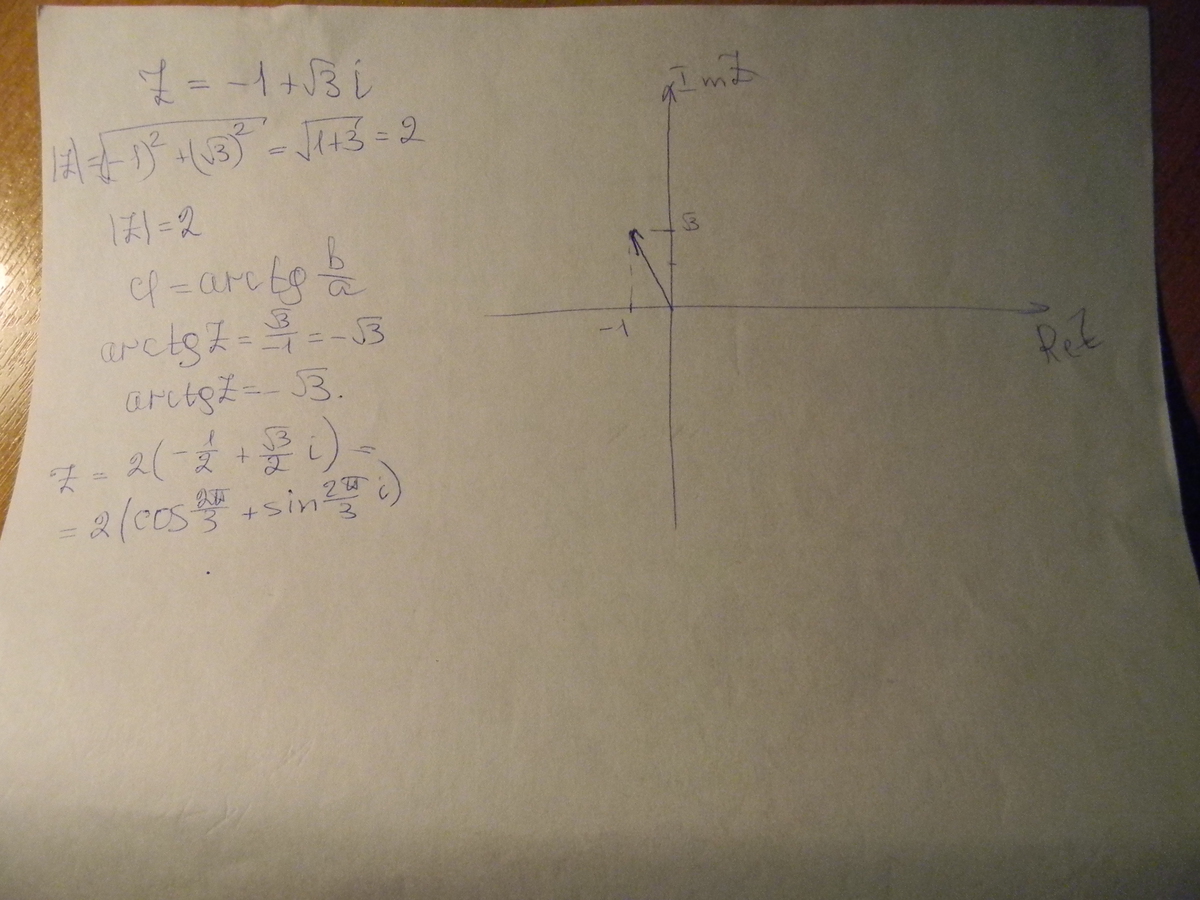 Z = -1 + √3 i
|Z| = √((-1)² + (√3)²) = √(1+3) = 2
|Z| = 2
φ = arctg b/a
arctg Z = √3/-1 = -√3
arctg Z = -√3.
Z = 2(-1/2 + √3/2 i) =
= 2(cos 2π/3 + sin 2π/3 i)
Im Z
√3
-1
Re Z